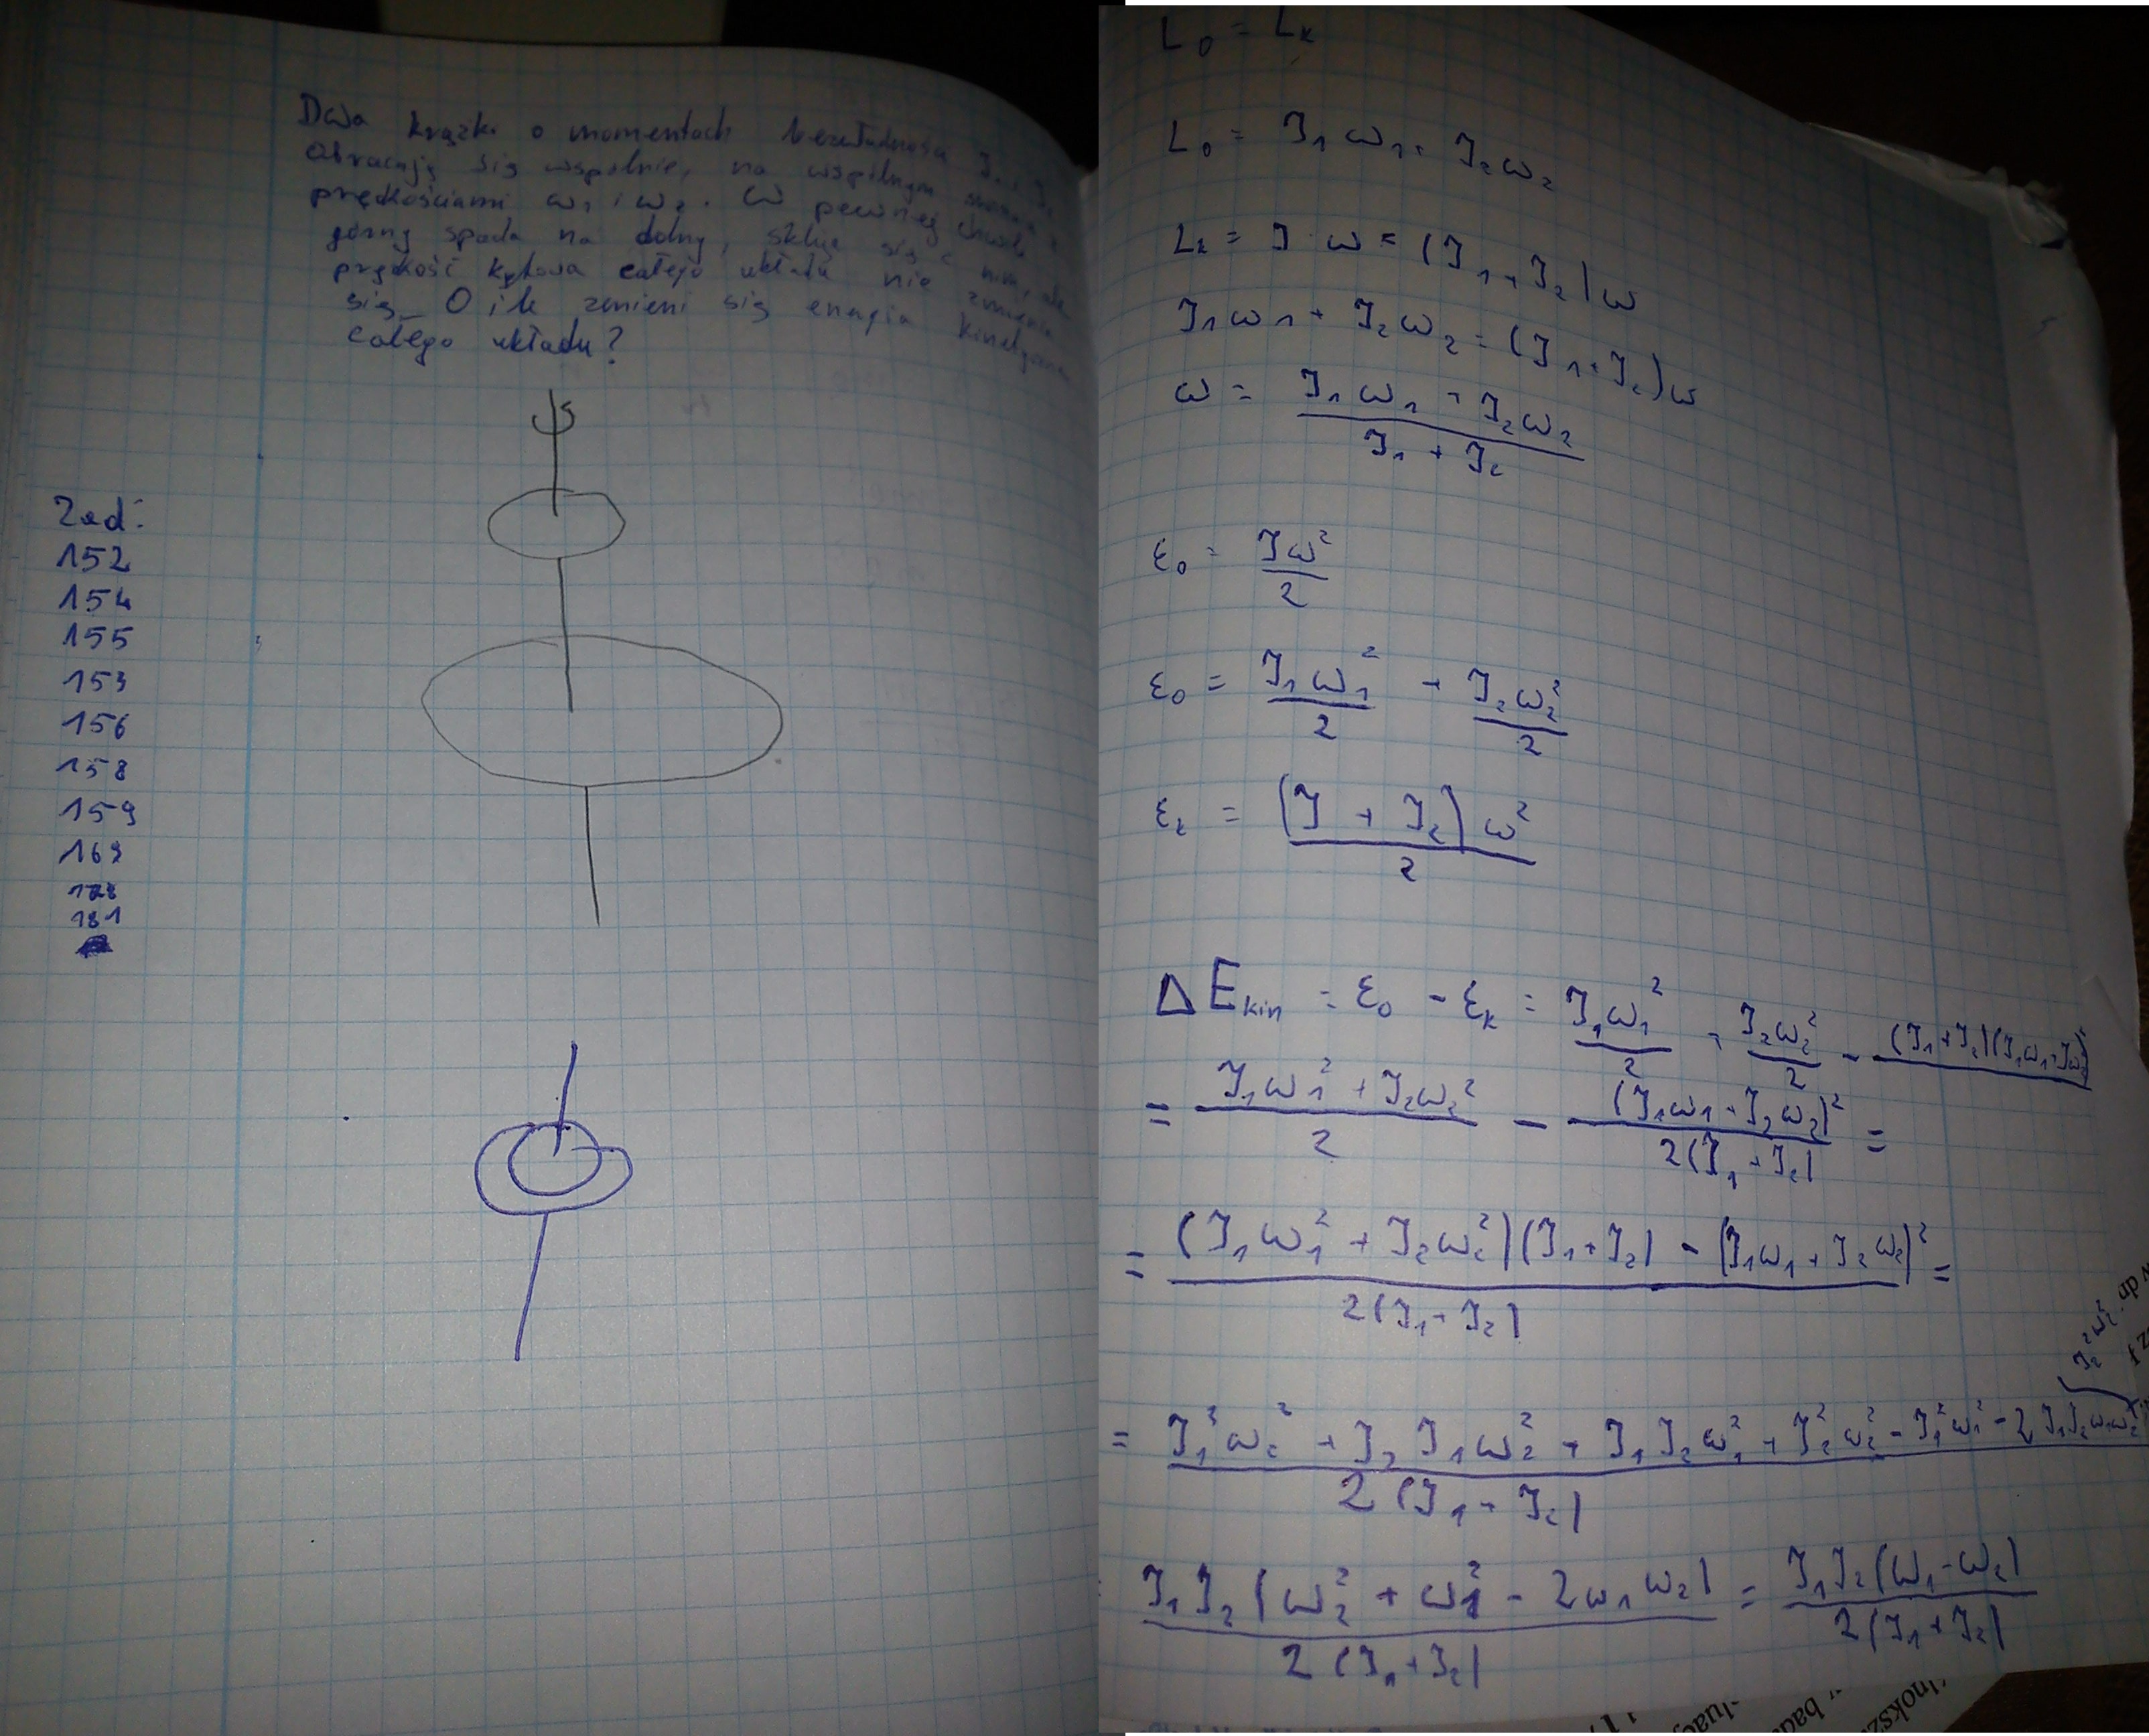 Dwa krążki o momentach bezwładności J₁ i J₂
obracają się wspólnie, na wspólnym
prędkościami ω₁ i ω₂. W pewnej chwili
górny spada na dolny, skleja się z nim, ale
prędkość kątowa całego układu nie zmienia
się. O ile zmieni się energia kinetyczna
całego układu?
Zad:
152
154
155
153
156
158
159
169
181
L₀ = Lₖ
L₀ = J₁ω₁ + J₂ω₂
Lₖ = J · ω = (J₁ + J₂)ω
J₁ω₁ + J₂ω₂ = (J₁ + J₂)ω
ω = (J₁ω₁ + J₂ω₂) / (J₁ + J₂)
ε₀ = Jω² / 2
ε₀ = J₁ω₁² / 2 + J₂ω₂² / 2
εₖ = (J + J₂) ω² / 2
ΔE kin = ε₀ - εₖ = J₁ω₁² / 2 + J₂ω₂² / 2 - (J₁+J₂)(J₁ω₁+J₂ω₂)²
= (J₁ω₁² + J₂ω₂²) / 2 - (J₁ω₁ + J₂ω₂)² / 2(J₁ + J₂) =
= ((J₁ω₁² + J₂ω₂²)(J₁+J₂) - (J₁ω₁ + J₂ω₂)²) / 2(J₁+J₂) =
= (J₁²ω₂² + J₂J₁ω₂² + J₁J₂ω₁² + J₂²ω₂² - J₁²ω₁² - 2J₁J₂ω₁ω₂ - J₂²ω₂²) / 2(J₁+J₂)
J₁J₂(ω₂² + ω₁² - 2ω₁ω₂) / 2(J₁+J₂) = J₁J₂(ω₁-ω₂) / 2(J₁+J₂)